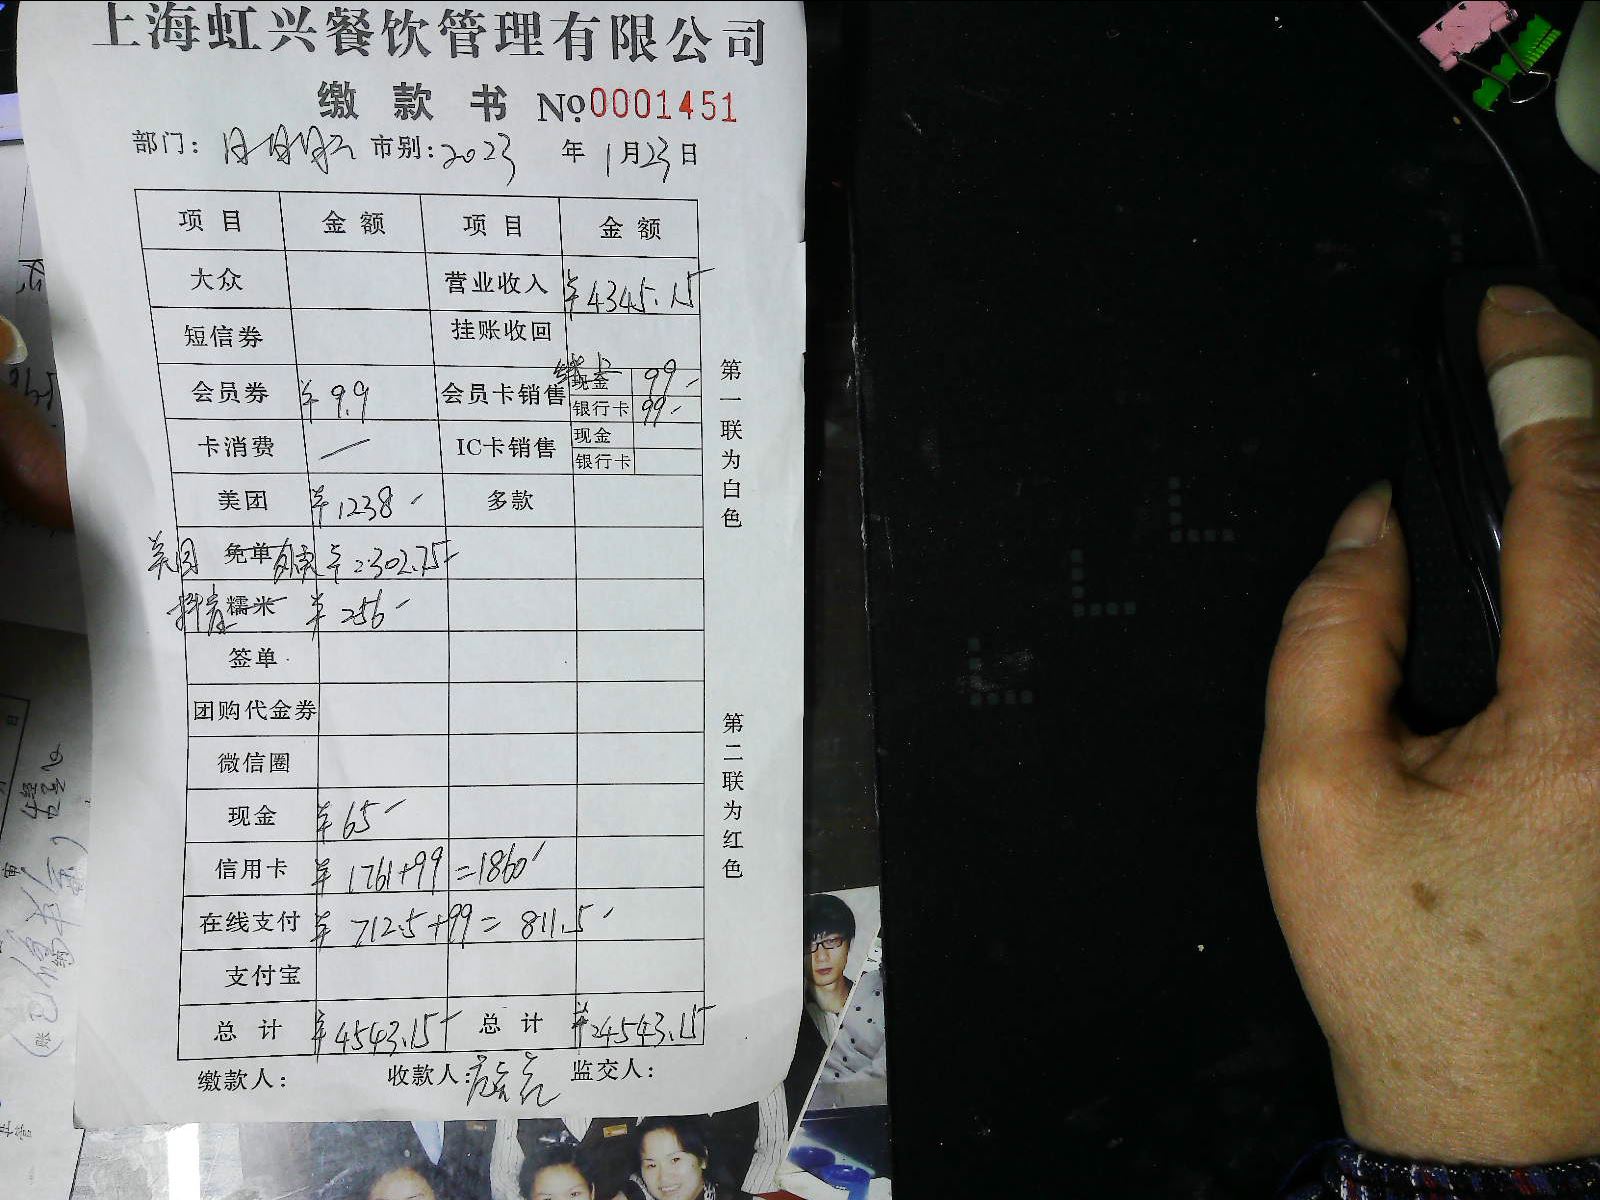 上海虹兴餐饮管理有限公司
缴款书 No.0001451
部门: 市别: 2023 年 1月23日
项目 金额 项目 金额
大众 营业收入 ¥4345.15
短信券 挂账收回
会员券 ¥9.9 会员卡销售 现金 99-
银行卡 99-
卡消费 — IC卡销售 现金
银行卡
美团 ¥1238- 多款
美团 免单 ¥302.75-
抖音 糯米 ¥256-
签单
团购代金券
微信圈
现金 ¥65-
信用卡 ¥1761+99=1860-
在线支付 ¥712.5+99=811.5-
支付宝
总计 ¥4543.15- 总计 ¥4543.15
缴款人: 收款人: 监交人:
第一联为白色
第二联为红色